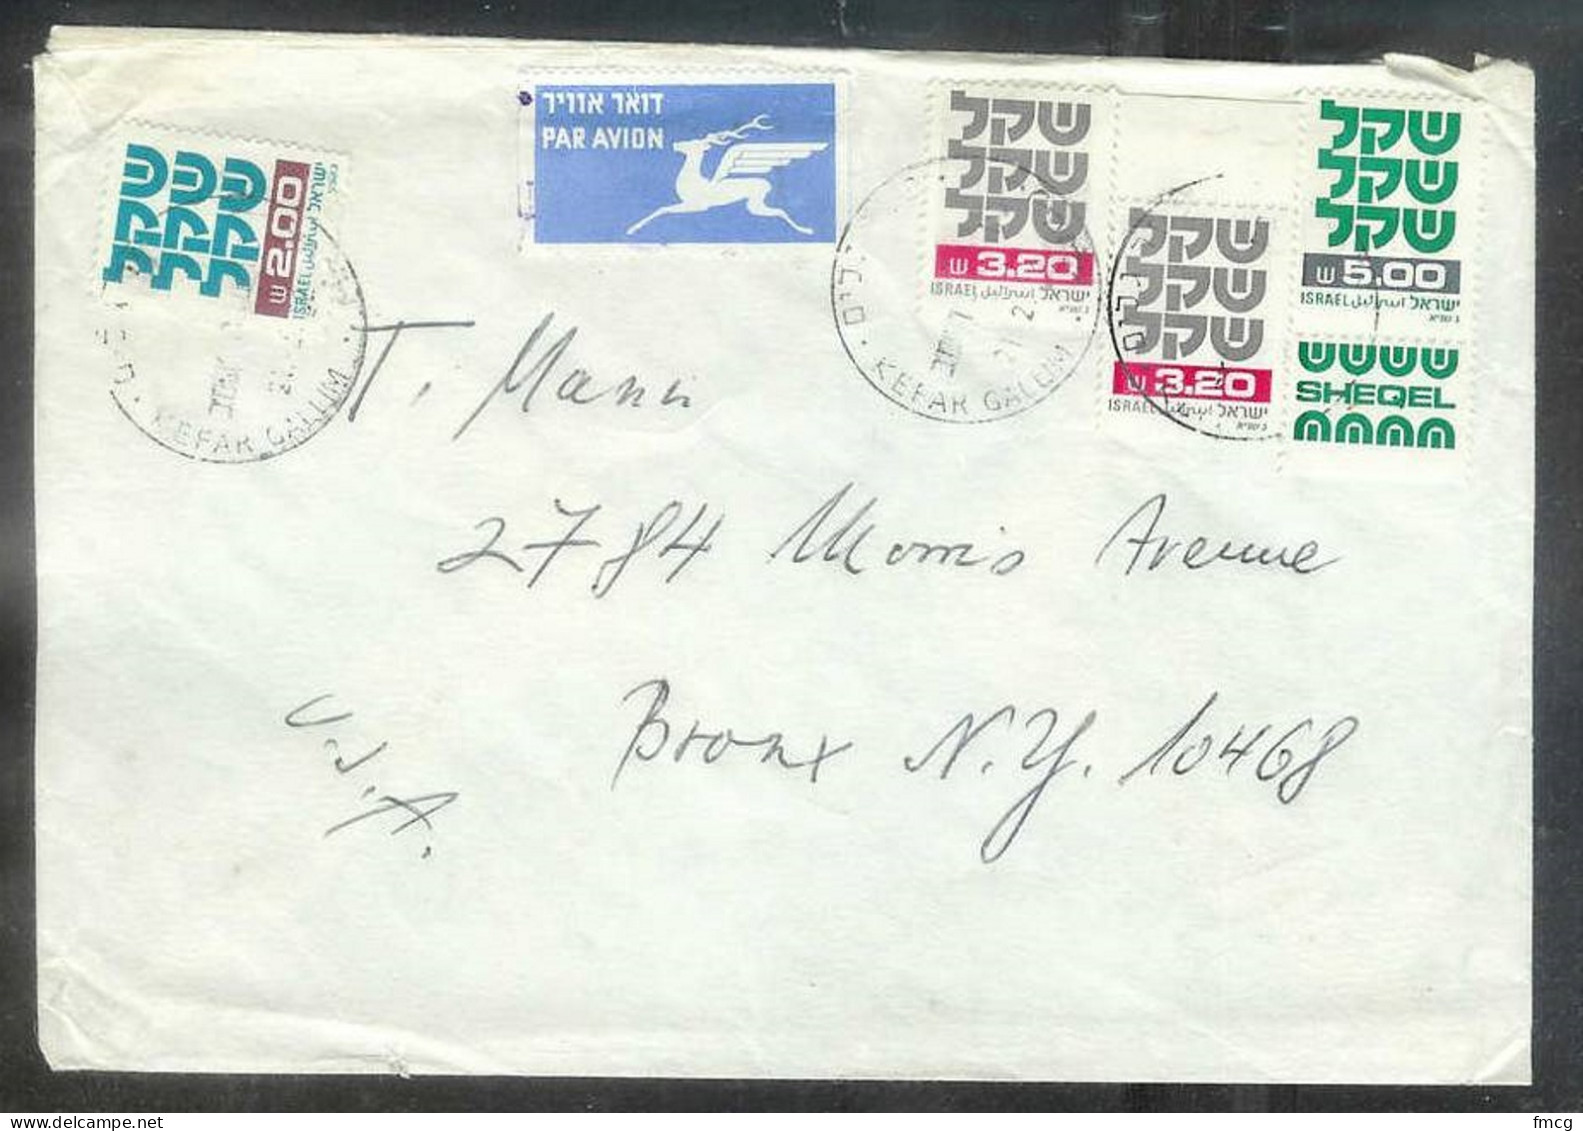 דואר אוויר
PAR AVION
שקל
שקל
שקל
ש 2.00
ISRAEL اسرائيل ישראל
שקל
שקל
שקל
ש 3.20
ISRAEL اسرائيل ישראל
שקל
שקל
שקל
ש 3.20
ISRAEL اسرائيل ישראל
שקל
שקל
שקל
ש 5.00
ISRAEL اسرائيل ישראל
SHEQEL
KEFAR GALLIM
KEFAR GALLIM
T. Mann
2784 Morris Avenue
Bronx N.Y. 10468
U.S.A.
fmcg
delcampe.net